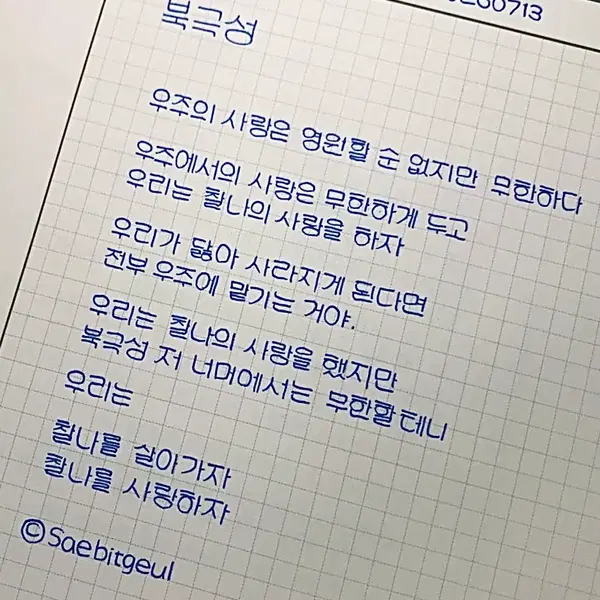 200713
북극성
우주의 사랑은 영원할 순 없지만 무한하다
우주에서의 사랑은 무한하게 두고
우리는 찰나의 사랑을 하자
우리가 닳아 사라지게 된다면
전부 우주에 맡기는 거야.
우리는 찰나의 사랑을 했지만
북극성 저 너머에서는 무한할테니
우리는
찰나를 살아가자
찰나를 사랑하자
©Saebitgeul